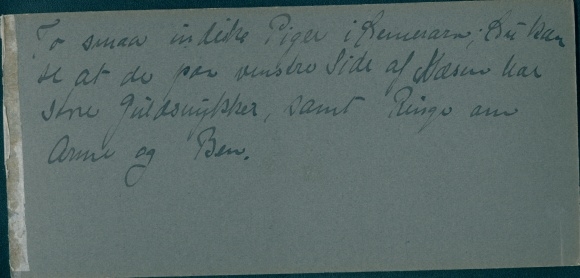 To smaa indiske Piger i Demerara, Du kan
se at de paa venstre Side af Næsen har
store Guldsmykker, samt Ringe om
Arme og Ben.